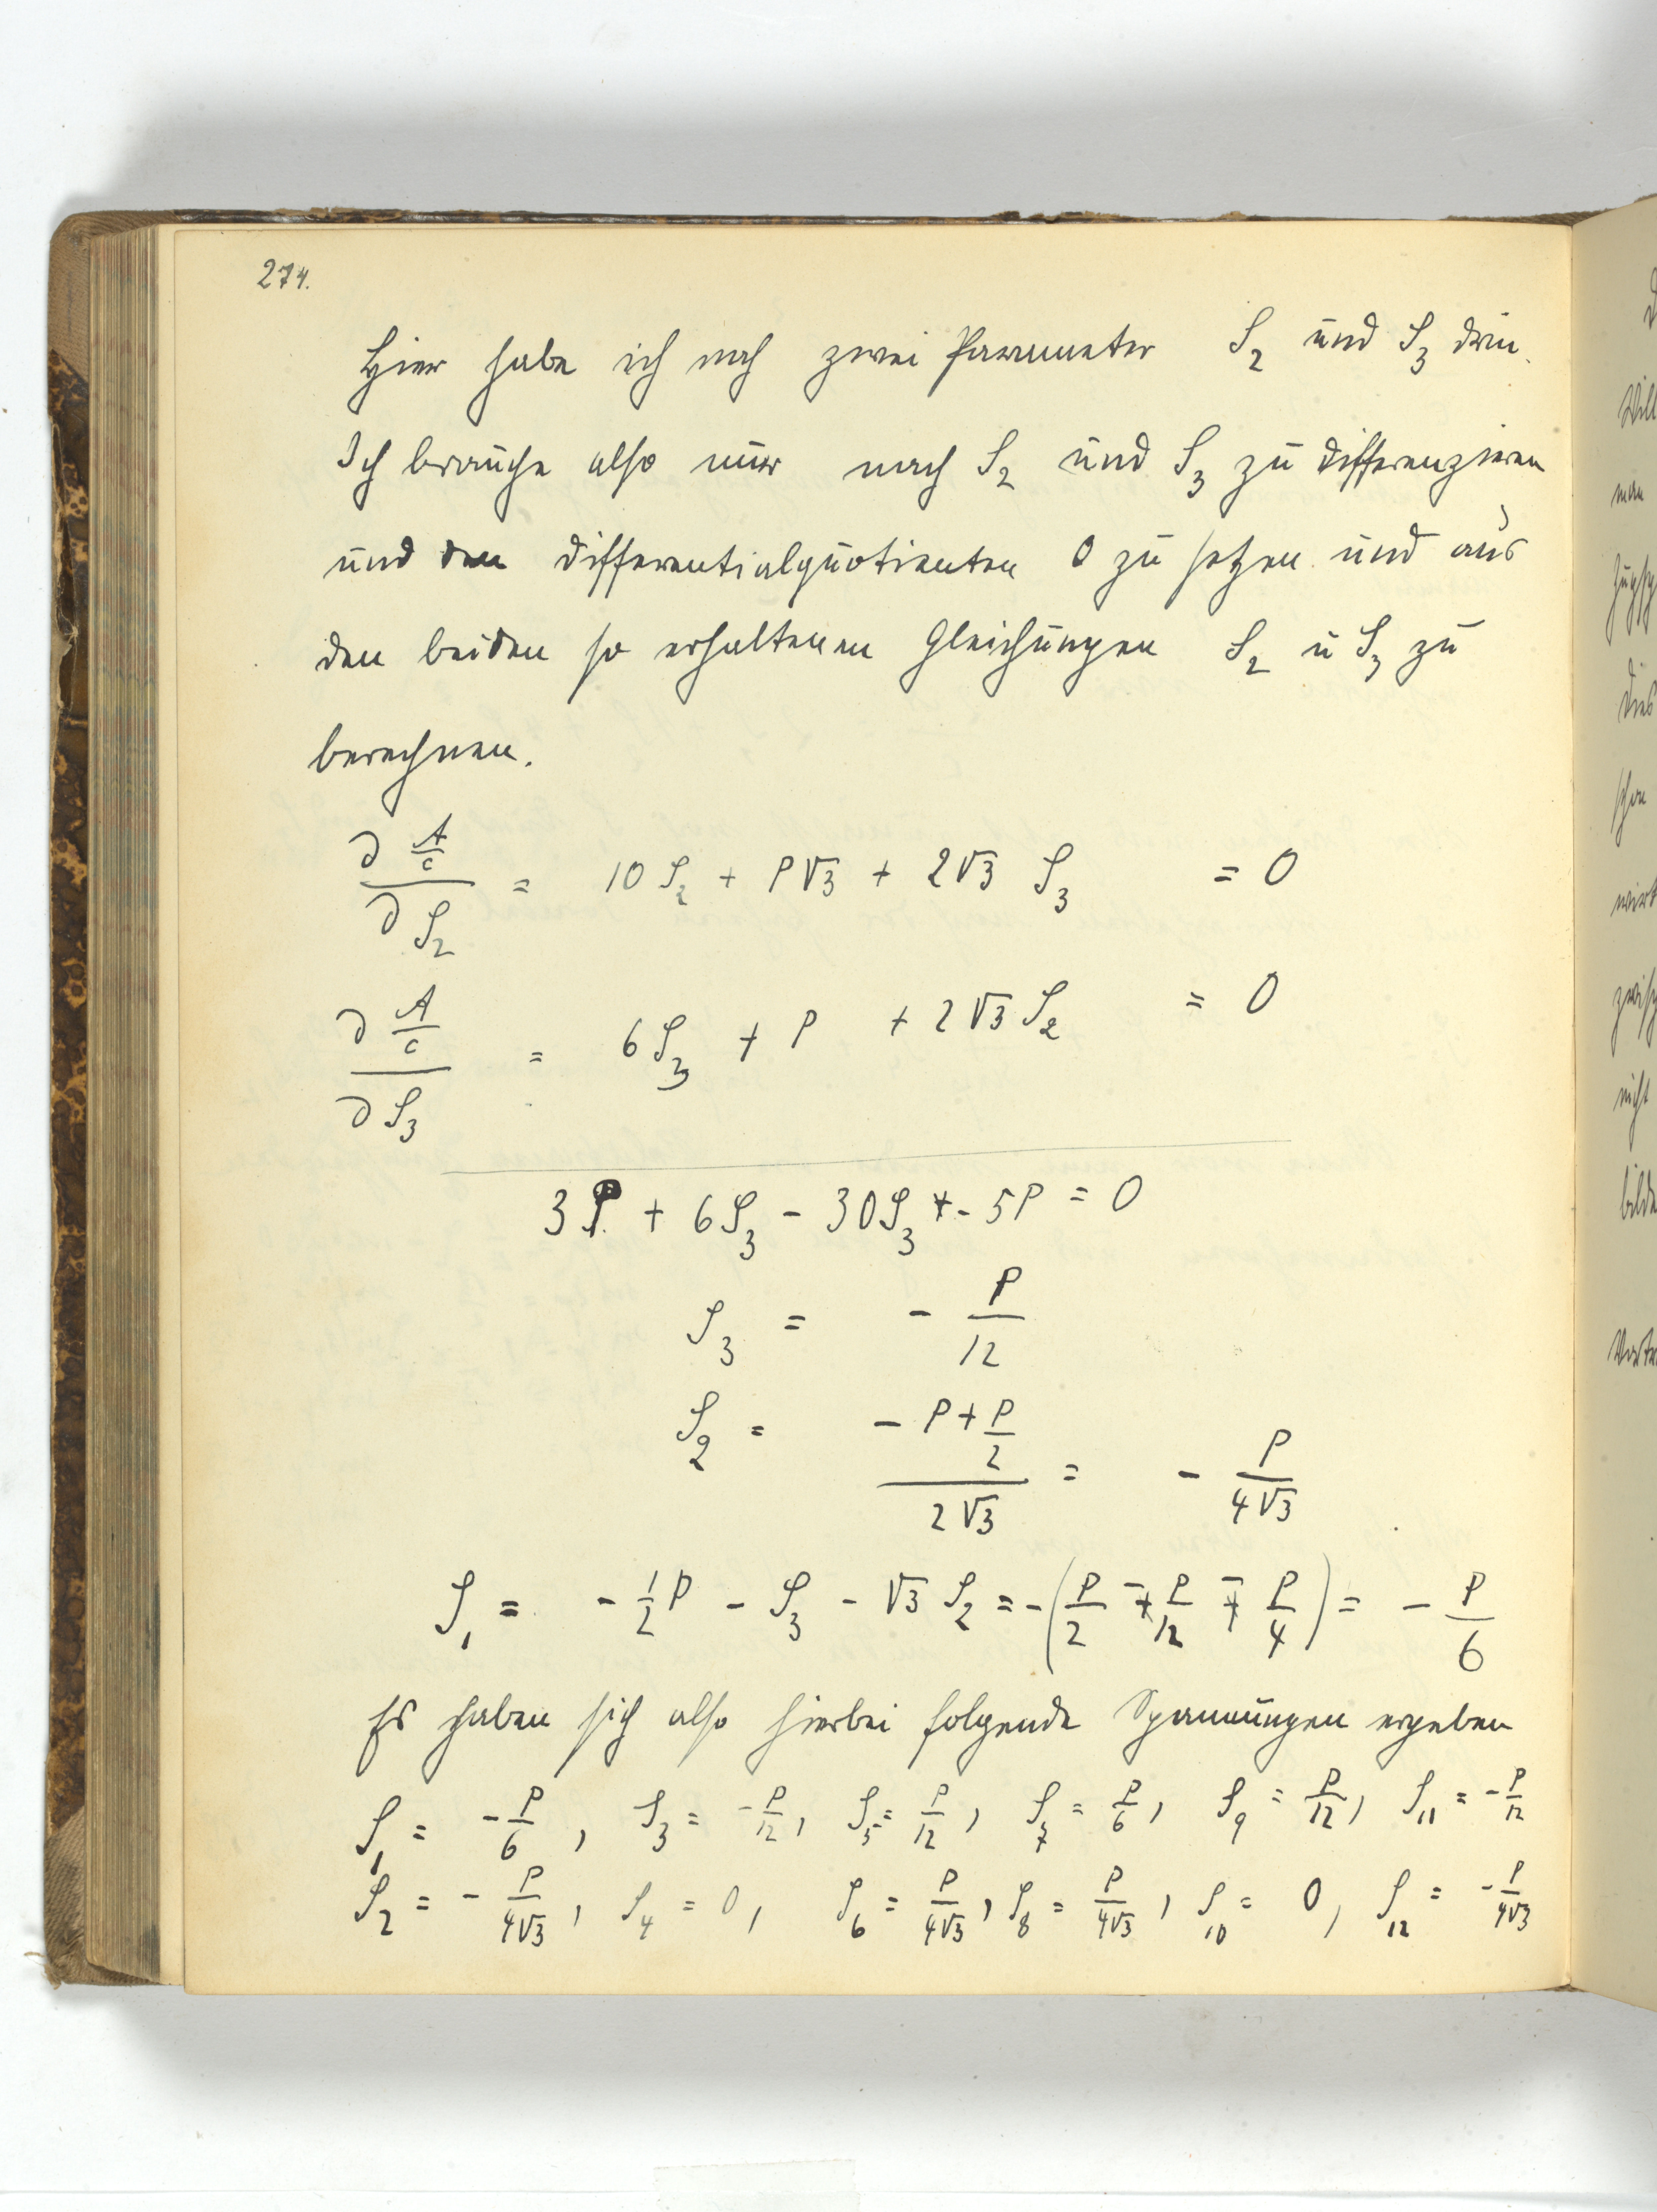 274.
Hier habe ich noch zwei Parameter S₂ und S₃ drin.
Ich brauche also nur nach S₂ und S₃ zu differenzieren
und den Differentialquotienten 0 zu setzen und aus
den beiden so erhaltenen Gleichungen S₂ u S₃ zu
berechnen.
∂ A/c / ∂ S₂ = 10 S₂ + P√3 + 2√3 S₃ = 0
∂ A/c / ∂ S₃ = 6 S₃ + P + 2√3 S₂ = 0
3P + 6S₃ - 30S₃ - 5P = 0
S₃ = - P/12
S₂ = (- P + P/2) / 2√3 = - P/4√3
S₁ = - 1/2 P - S₃ - √3 S₂ = - (P/2 - P/12 - P/4) = - P/6
Es haben sich also hierbei folgende Spannungen ergeben
S₁ = - P/6, S₃ = - P/12, S₅ = P/12, S₇ = P/6, S₉ = P/12, S₁₁ = - P/12
S₂ = - P/4√3, S₄ = 0, S₆ = P/4√3, S₈ = P/4√3, S₁₀ = 0, S₁₂ = - P/4√3
Will
man
Dies
schon
wirkt
nicht
bilde